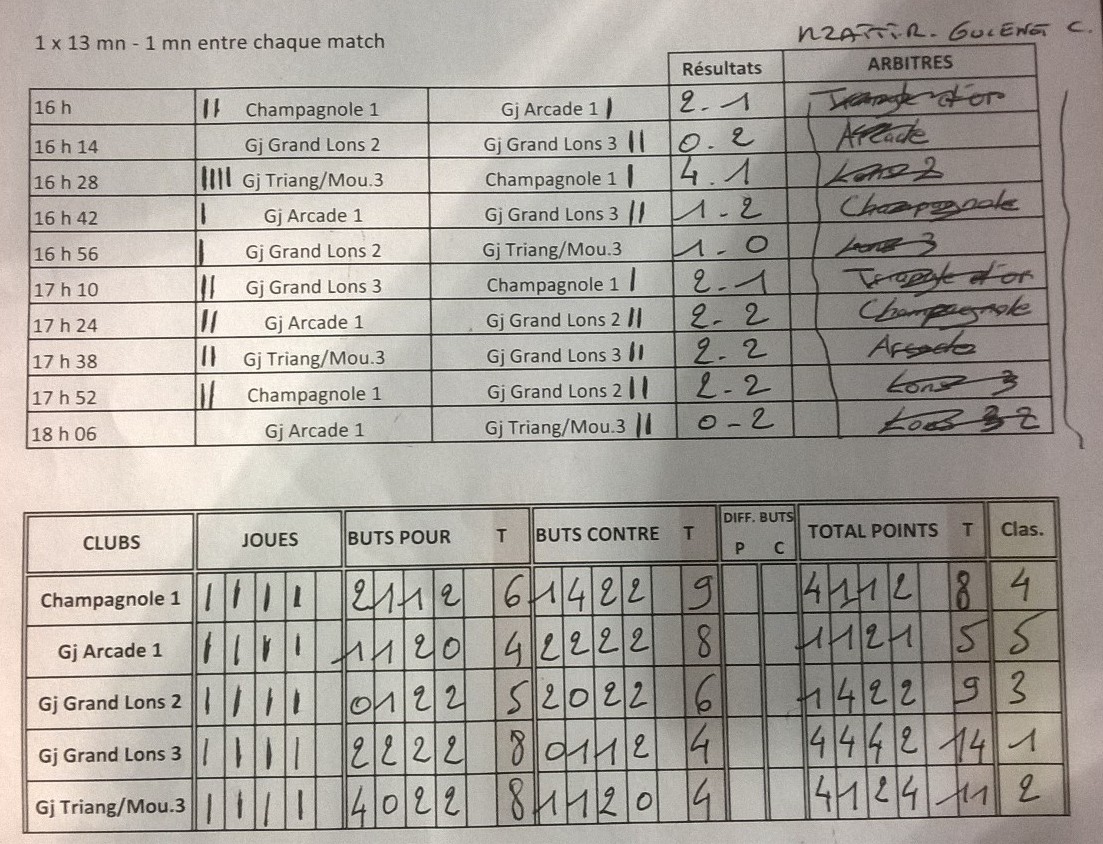 1 x 13 mn - 1 mn entre chaque match
Résultats ARBITRES
16 h || Champagnole 1 Gj Arcade 1 | 2.1 Triangle d'or
16 h 14 Gj Grand Lons 2 Gj Grand Lons 3 || 0.2 Arcade
16 h 28 |||| Gj Triang/Mou.3 Champagnole 1 | 4.1 Lons 2
16 h 42 | Gj Arcade 1 Gj Grand Lons 3 || 1-2 Champagnole
16 h 56 | Gj Grand Lons 2 Gj Triang/Mou.3 1-0 Lons 3
17 h 10 || Gj Grand Lons 3 Champagnole 1 | 2-1 Triangle d'or
17 h 24 || Gj Arcade 1 Gj Grand Lons 2 || 2-2 Champagnole
17 h 38 || Gj Triang/Mou.3 Gj Grand Lons 3 || 2-2 Arcade
17 h 52 || Champagnole 1 Gj Grand Lons 2 || 2-2 Lons 3
18 h 06 Gj Arcade 1 Gj Triang/Mou.3 || 0-2 Lons 3 2
CLUBS JOUES BUTS POUR T BUTS CONTRE T DIFF. BUTS P C TOTAL POINTS T Clas.
Champagnole 1 | | | | 2 1 1 2 6 1 4 2 2 9 4 1 1 2 8 4
Gj Arcade 1 | | | | 1 1 2 0 4 2 2 2 2 8 1 1 2 1 5 5
Gj Grand Lons 2 | | | | 0 1 2 2 5 2 0 2 2 6 1 4 2 2 9 3
Gj Grand Lons 3 | | | | 2 2 2 2 8 0 1 1 2 4 4 4 4 2 14 1
Gj Triang/Mou.3 | | | | 4 0 2 2 8 1 1 2 0 4 4 1 2 4 11 2